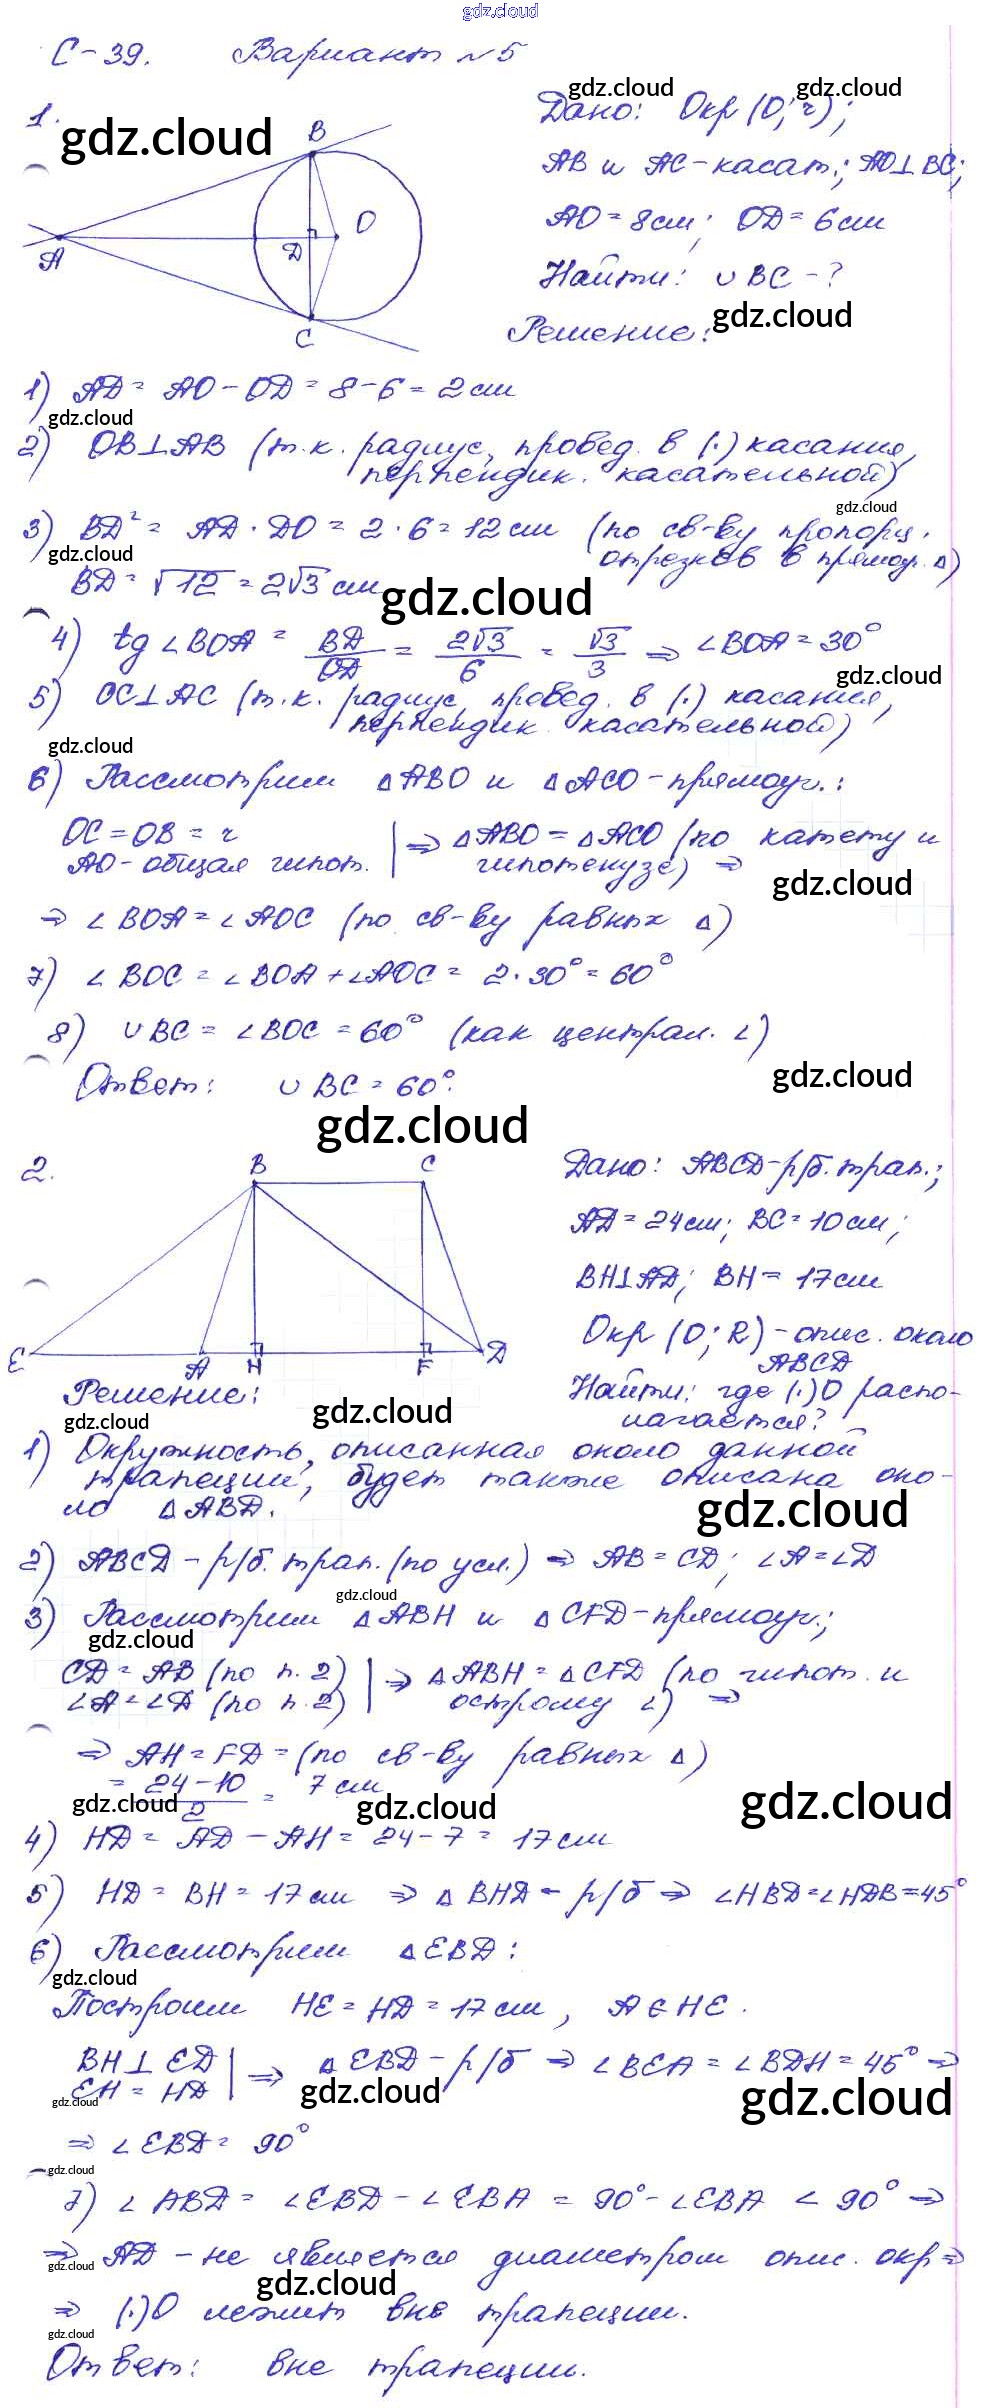 gdz.cloud
С-39. Вариант №5
gdz.cloud gdz.cloud
1. gdz.cloud
B
O
D
A
C
Дано: Окр (O; r);
AB и AC - касат.; AO⊥BC;
AO = 8см; OD = 6см
Найти: ∪BC - ?
gdz.cloud
Решение:
1) AD = AO - OD = 8 - 6 = 2см
gdz.cloud
2) OB⊥AB (т.к. радиус, провед. в (·) касания,
перпендик. касательной)
gdz.cloud
3) BD² = AD · DO = 2 · 6 = 12см (по св-ву пропорц.
отрезков в прямоуг. Δ)
gdz.cloud
BD = √12 = 2√3 см
gdz.cloud
4) tg ∠BOA = BD/OD = 2√3/6 = √3/3 ⇒ ∠BOA = 30°
gdz.cloud
5) OC⊥AC (т.к. радиус, провед. в (·) касания,
перпендик. касательной)
gdz.cloud
6) Рассмотрим ΔABO и ΔACO - прямоуг.:
OC = OB = r | ⇒ ΔABO = ΔACO (по катету и
AO - общая гипот. | гипотенузе) ⇒
gdz.cloud
⇒ ∠BOA = ∠AOC (по св-ву равных Δ)
7) ∠BOC = ∠BOA + ∠AOC = 2·30° = 60°
8) ∪BC = ∠BOC = 60° (как централ. ∠)
gdz.cloud
Ответ: ∪BC = 60°.
gdz.cloud
2.
B C
E A H F D
Дано: ABCD - р/б. трап.;
AD = 24см; BC = 10см;
BH⊥AD; BH = 17см
Окр (O; R) - опис. около
ABCD
Найти: где (·)O распо-
лагается?
Решение:
gdz.cloud gdz.cloud
1) Окружность, описанная около данной
трапеции, будет также описана око-
ло ΔABD.
gdz.cloud
2) ABCD - р/б. трап. (по усл.) ⇒ AB = CD; ∠A = ∠D
gdz.cloud
3) Рассмотрим ΔABH и ΔCFD - прямоуг.;
gdz.cloud
CD = AB (по п. 2) | ⇒ ΔABH = ΔCFD (по гипот. и
∠A = ∠D (по п. 2) | острому ∠) ⇒
⇒ AH = FD = (по св-ву равных Δ)
= 24-10/2 = 7 см
gdz.cloud gdz.cloud gdz.cloud
4) HD = AD - AH = 24 - 7 = 17см
5) HD = BH = 17см ⇒ ΔBHD - р/б ⇒ ∠HBD = ∠HDB = 45°
6) Рассмотрим ΔEBD:
gdz.cloud
Построим HE = HD = 17см, A∈HE.
BH⊥ED | ⇒ ΔEBD - р/б ⇒ ∠BEA = ∠BDH = 45° ⇒
EH = HD |
gdz.cloud gdz.cloud gdz.cloud
⇒ ∠EBD = 90°
gdz.cloud
7) ∠ABD = ∠EBD - ∠EBA = 90° - ∠EBA < 90° ⇒
⇒ AD - не является диаметром опис. окр ⇒
gdz.cloud gdz.cloud
⇒ (·)O лежит вне трапеции.
gdz.cloud
Ответ: вне трапеции.